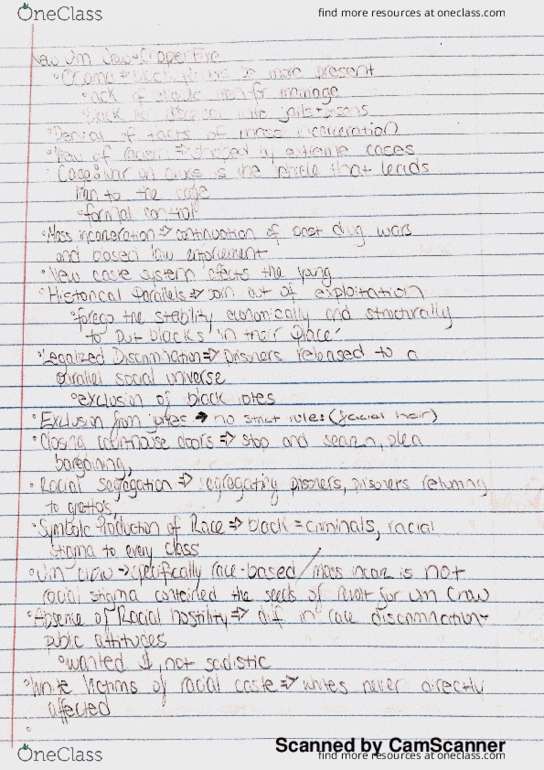 OneClass
find more resources at oneclass.com
New Jim Crow - Chapter Five
more present
lack of men for marriage
Denial of facts of mass incarceration
View of racism => shaped by extreme cases
Cage => war on drugs is the vehicle that leads
men to the cage
°formal control
°Mass incarceration => continuation of past drug wars
and biased law enforcement
°New caste system affects the young
°Historical Parallels => born out of exploitation
°forego the stability economically and structurally
to put blacks 'in their place'
°Legalized Discrimination => prisoners released to a
parallel social universe
°exclusion of black votes
°Exclusion from juries → no strict rules (facial hair)
°Closing courthouse doors => stop and search, plea
bargaining,
°Racial segregation => segregating prisoners, prisoners returning
to ghettos,
°Symbolic Production of Race => black = criminals, racial
stigma to every class
°Jim Crow → specifically race-based/mass incar is NOT
racial stigma contained the seeds of revolt for Jim Crow
°Absence of Racial hostility => dif in race discrimination-
public attitudes
°wanted $, not sadistic
°White Victims of racial caste => whites never directly
affected
°
Scanned by CamScanner
OneClass
find more resources at oneclass.com